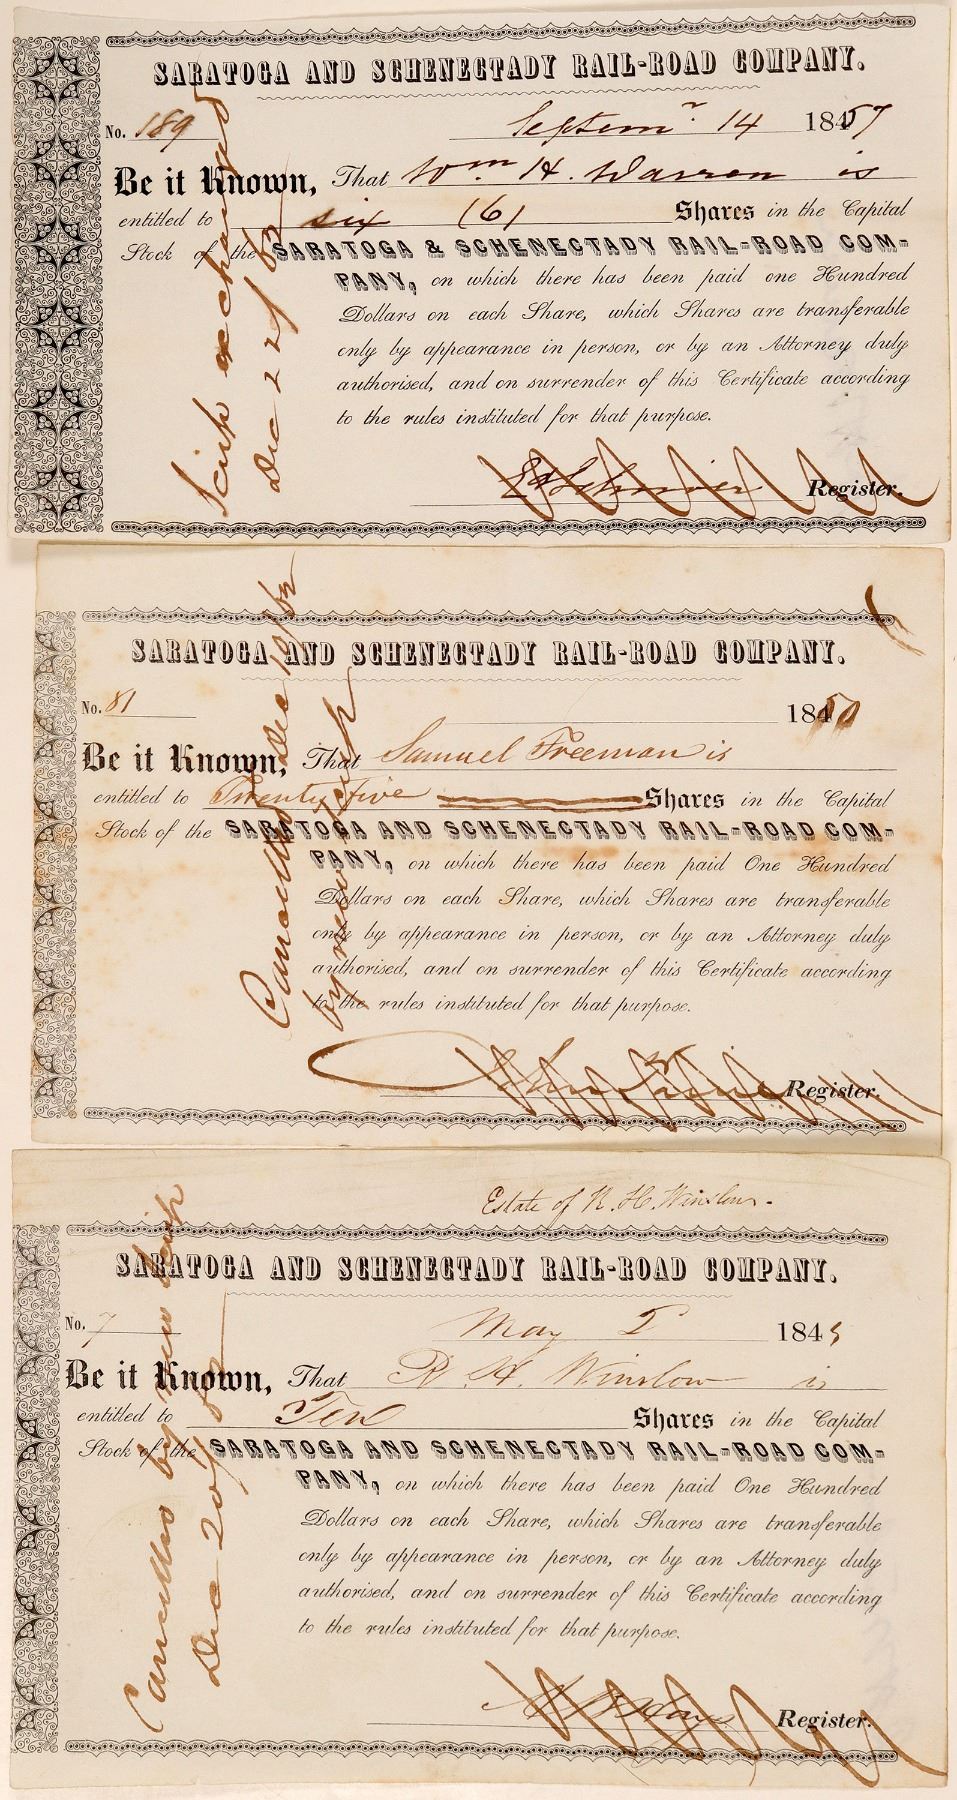 SARATOGA AND SCHENECTADY RAIL-ROAD COMPANY.
No. 189 Septemr 14 1857
Be it Known, That Wm H. Warren is
entitled to six (6) Shares in the Capital
Stock of the SARATOGA & SCHENECTADY RAIL-ROAD COM-
PANY, on which there has been paid one Hundred
Dollars on each Share, which Shares are transferable
only by appearance in person, or by an Attorney duly
authorised, and on surrender of this Certificate according
to the rules instituted for that purpose.
Register.
Scrip exchanged
Dec 22/
SARATOGA AND SCHENECTADY RAIL-ROAD COMPANY.
No. 81 1850
Be it Known, That Samuel Freeman is
entitled to Twenty five Shares in the Capital
Stock of the SARATOGA AND SCHENECTADY RAIL-ROAD COM-
PANY, on which there has been paid One Hundred
Dollars on each Share, which Shares are transferable
only by appearance in person, or by an Attorney duly
authorised, and on surrender of this Certificate according
to the rules instituted for that purpose.
Register.
Cancelled Dec
by new scrip
Estate of R. H. Winslow.
SARATOGA AND SCHENECTADY RAIL-ROAD COMPANY.
No. 7 May 184
Be it Known, That R. H. Winslow is
entitled to Ten Shares in the Capital
Stock of the SARATOGA AND SCHENECTADY RAIL-ROAD COM-
PANY, on which there has been paid One Hundred
Dollars on each Share, which Shares are transferable
only by appearance in person, or by an Attorney duly
authorised, and on surrender of this Certificate according
to the rules instituted for that purpose.
Register.
Cancelled by new scrip
Dec 20/